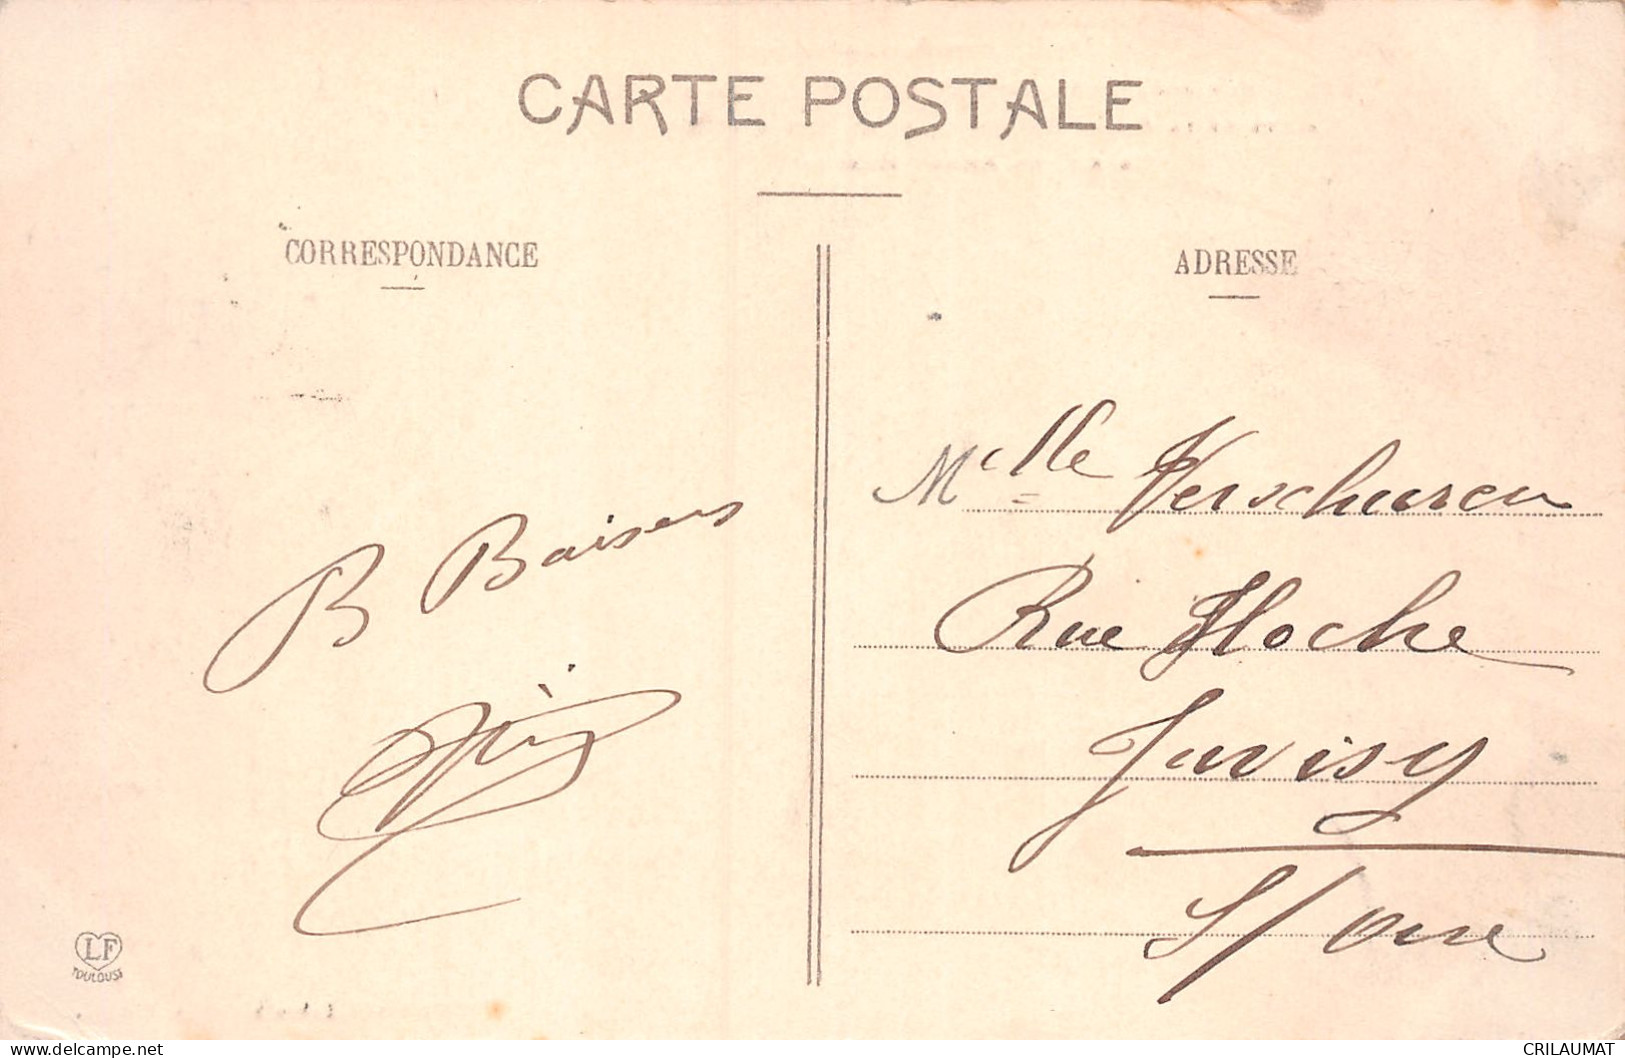 CARTE POSTALE
CORRESPONDANCE
ADRESSE
B Baisers
Mclle Verschuren
Rue Hoche
Juvisy
S/ orge
LF
TOULOUSE
delcampe.net
CRILAUMAT